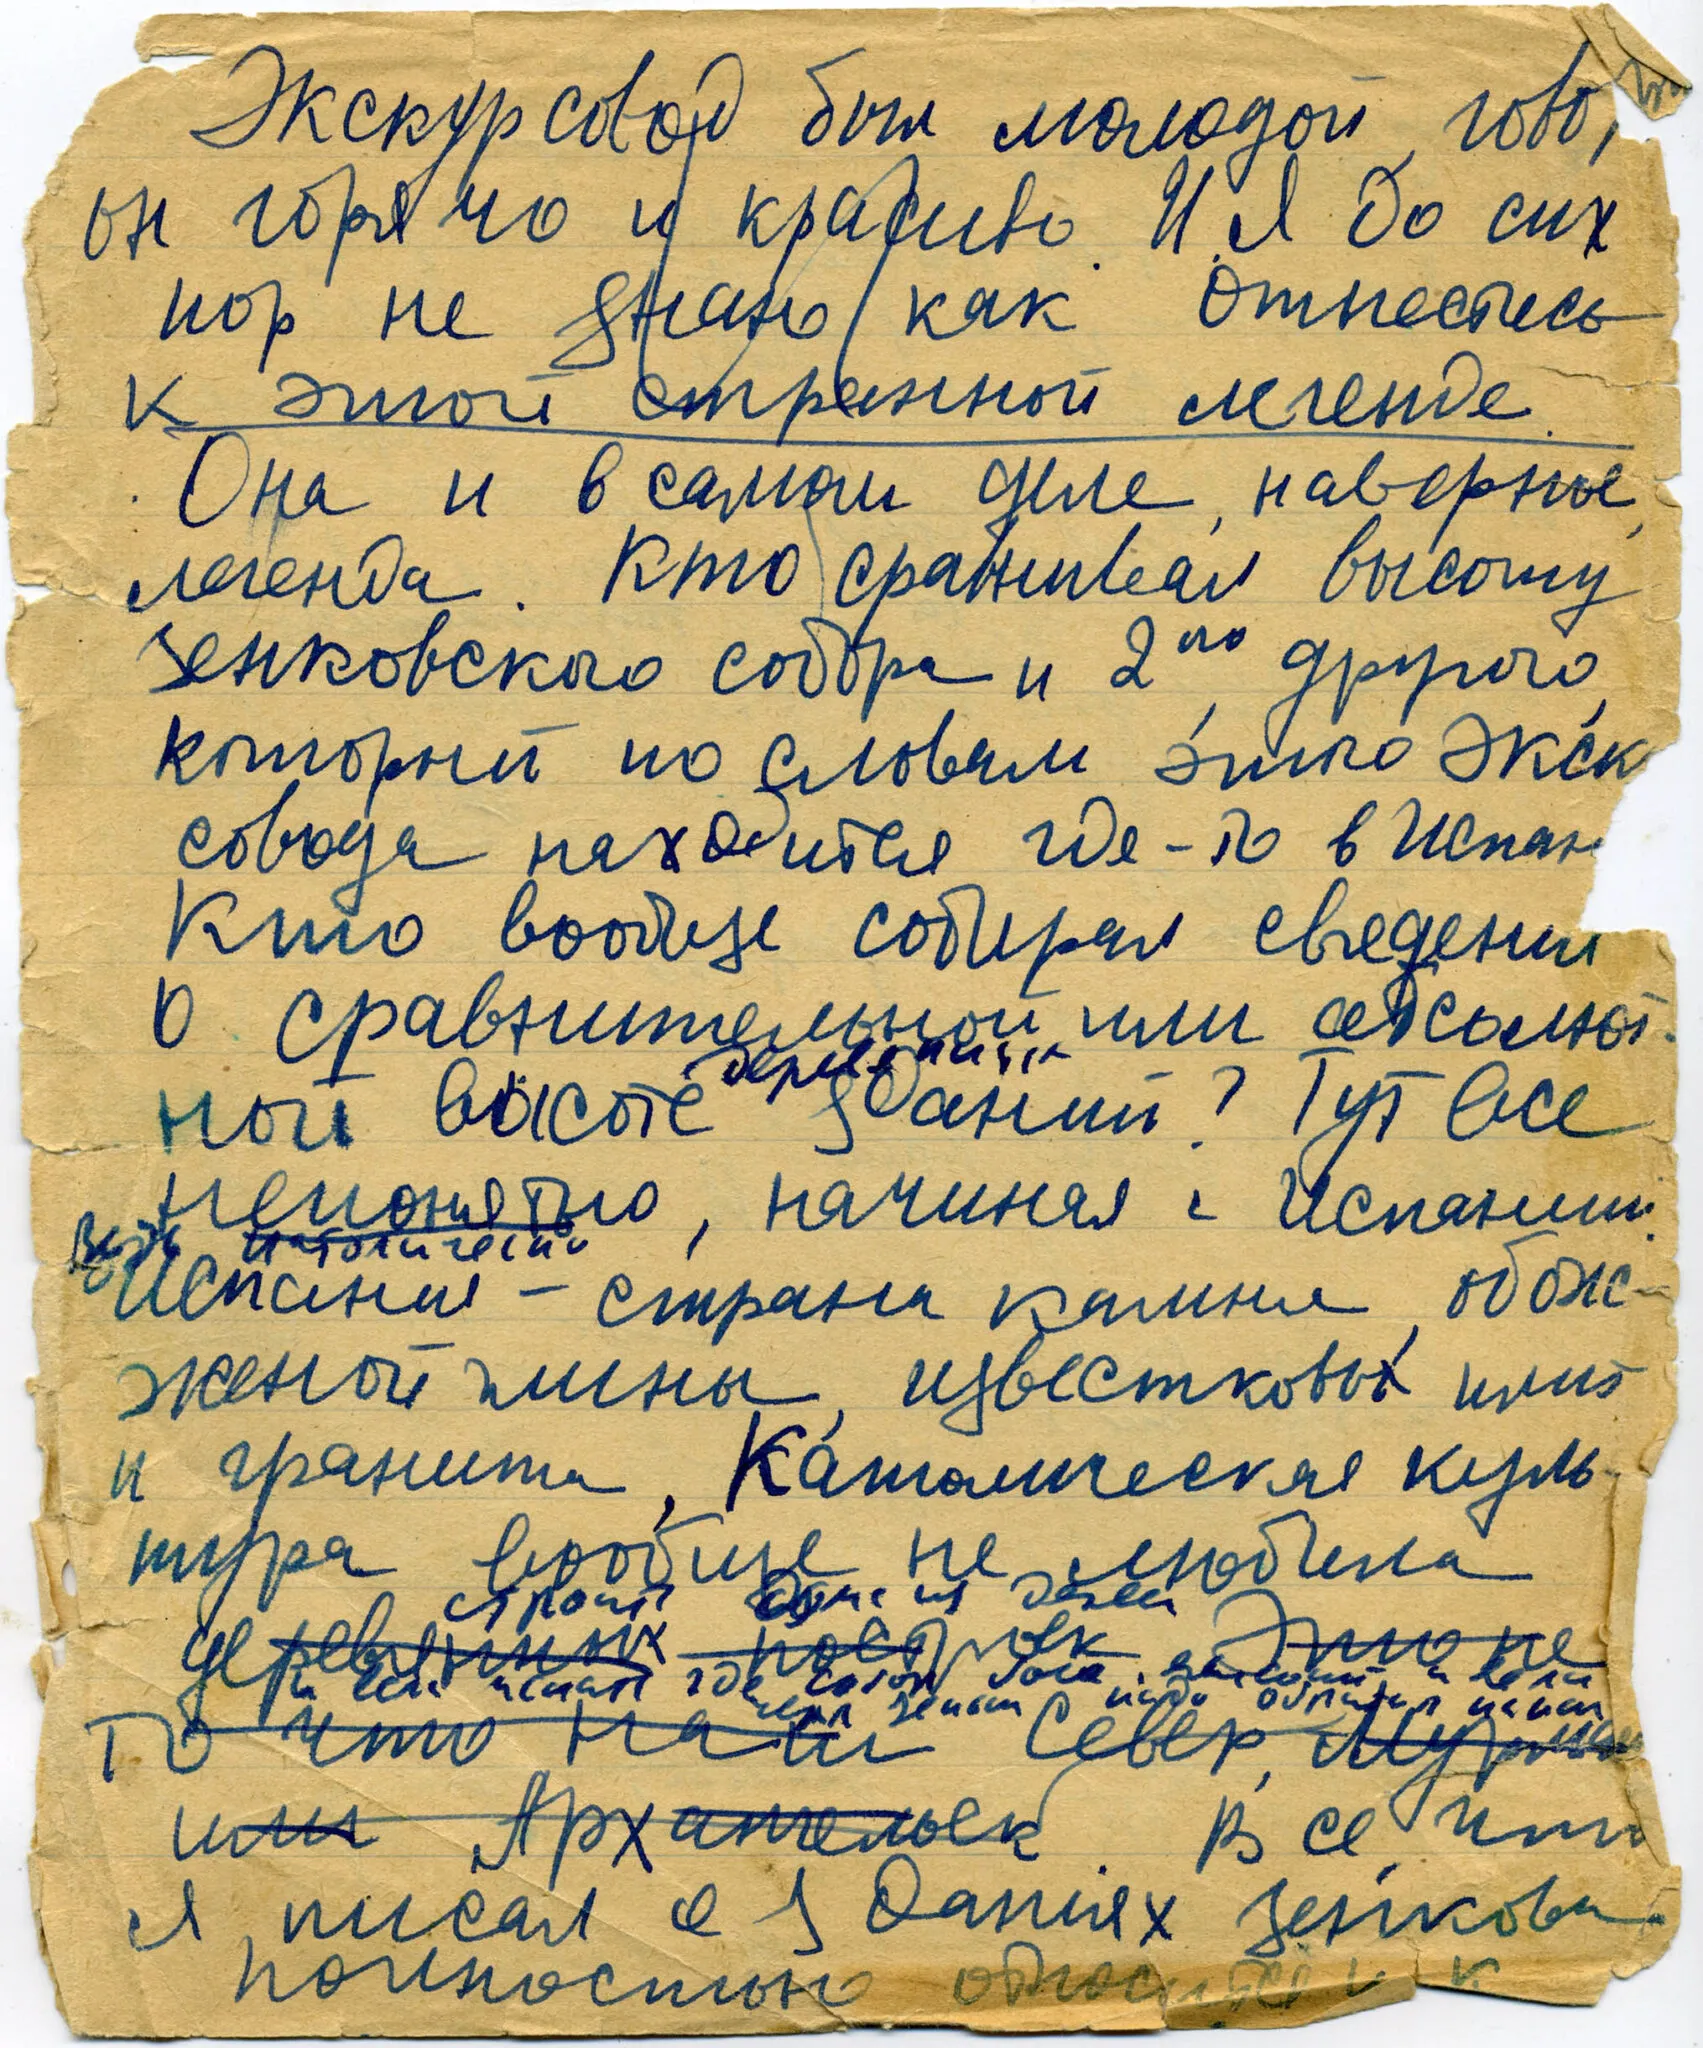 Экскурсовод был молодой, гово
он горячо и красиво. И я до сих
пор не знаю как отнестись
к этой странной легенде.
Она и в самом деле, наверное,
легенда. Кто сравнивал высоту
Зенковского собора и 2го, другого,
который по словам этого экск
совода находится где-то в Испан
Кто вообще собирал сведения
о сравнительной или абсолют-
деревянных
ной высоте зданий? Тут все
непонятно, начиная с Испании.
Ведь католическая
Испания - страна камня, обож-
женой глины, известковых плит
и гранита, Католическая куль-
тура вообще не любила
строить дома из
деревянных построек. Это не
и если искать где
то что наш Север, Мурман
или Архангельск. Все, что
я писал о зданиях Зенкова
полностью относится и к